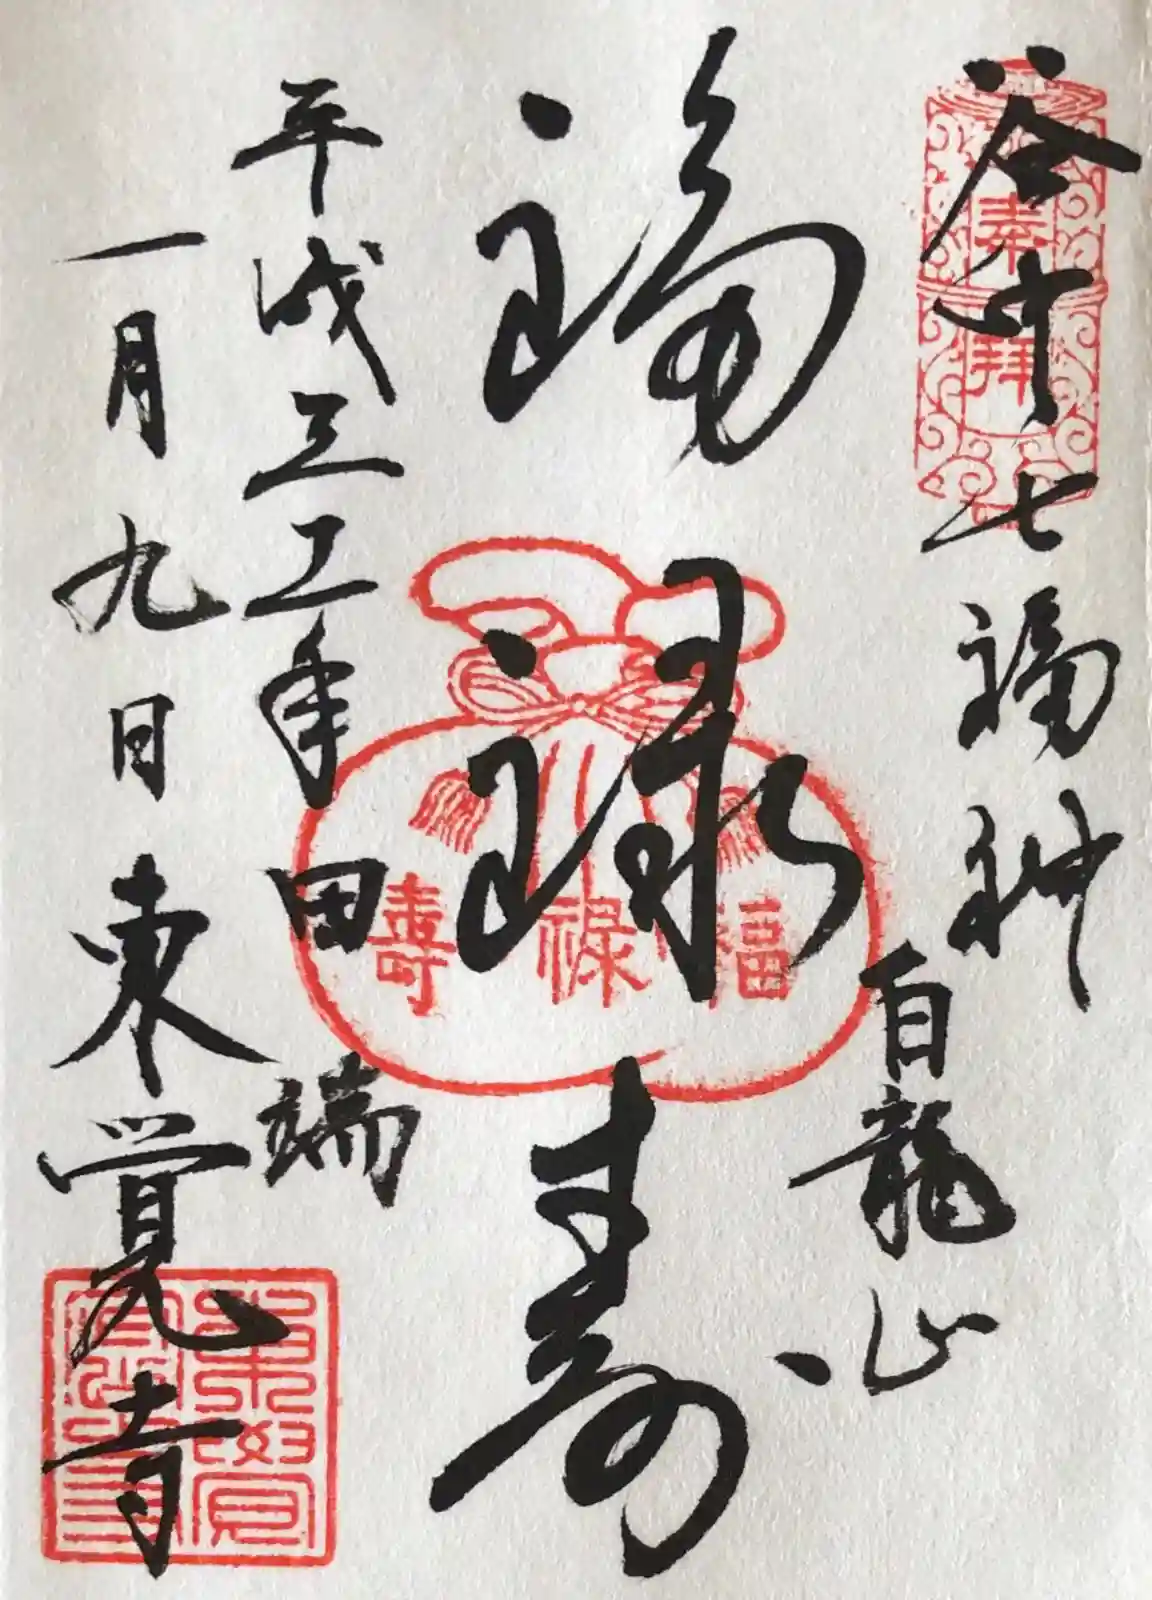 奉拝
谷中七福神
白龍山
福禄寿
福禄壽
平成三十一年
一月九日
田端
東覚寺